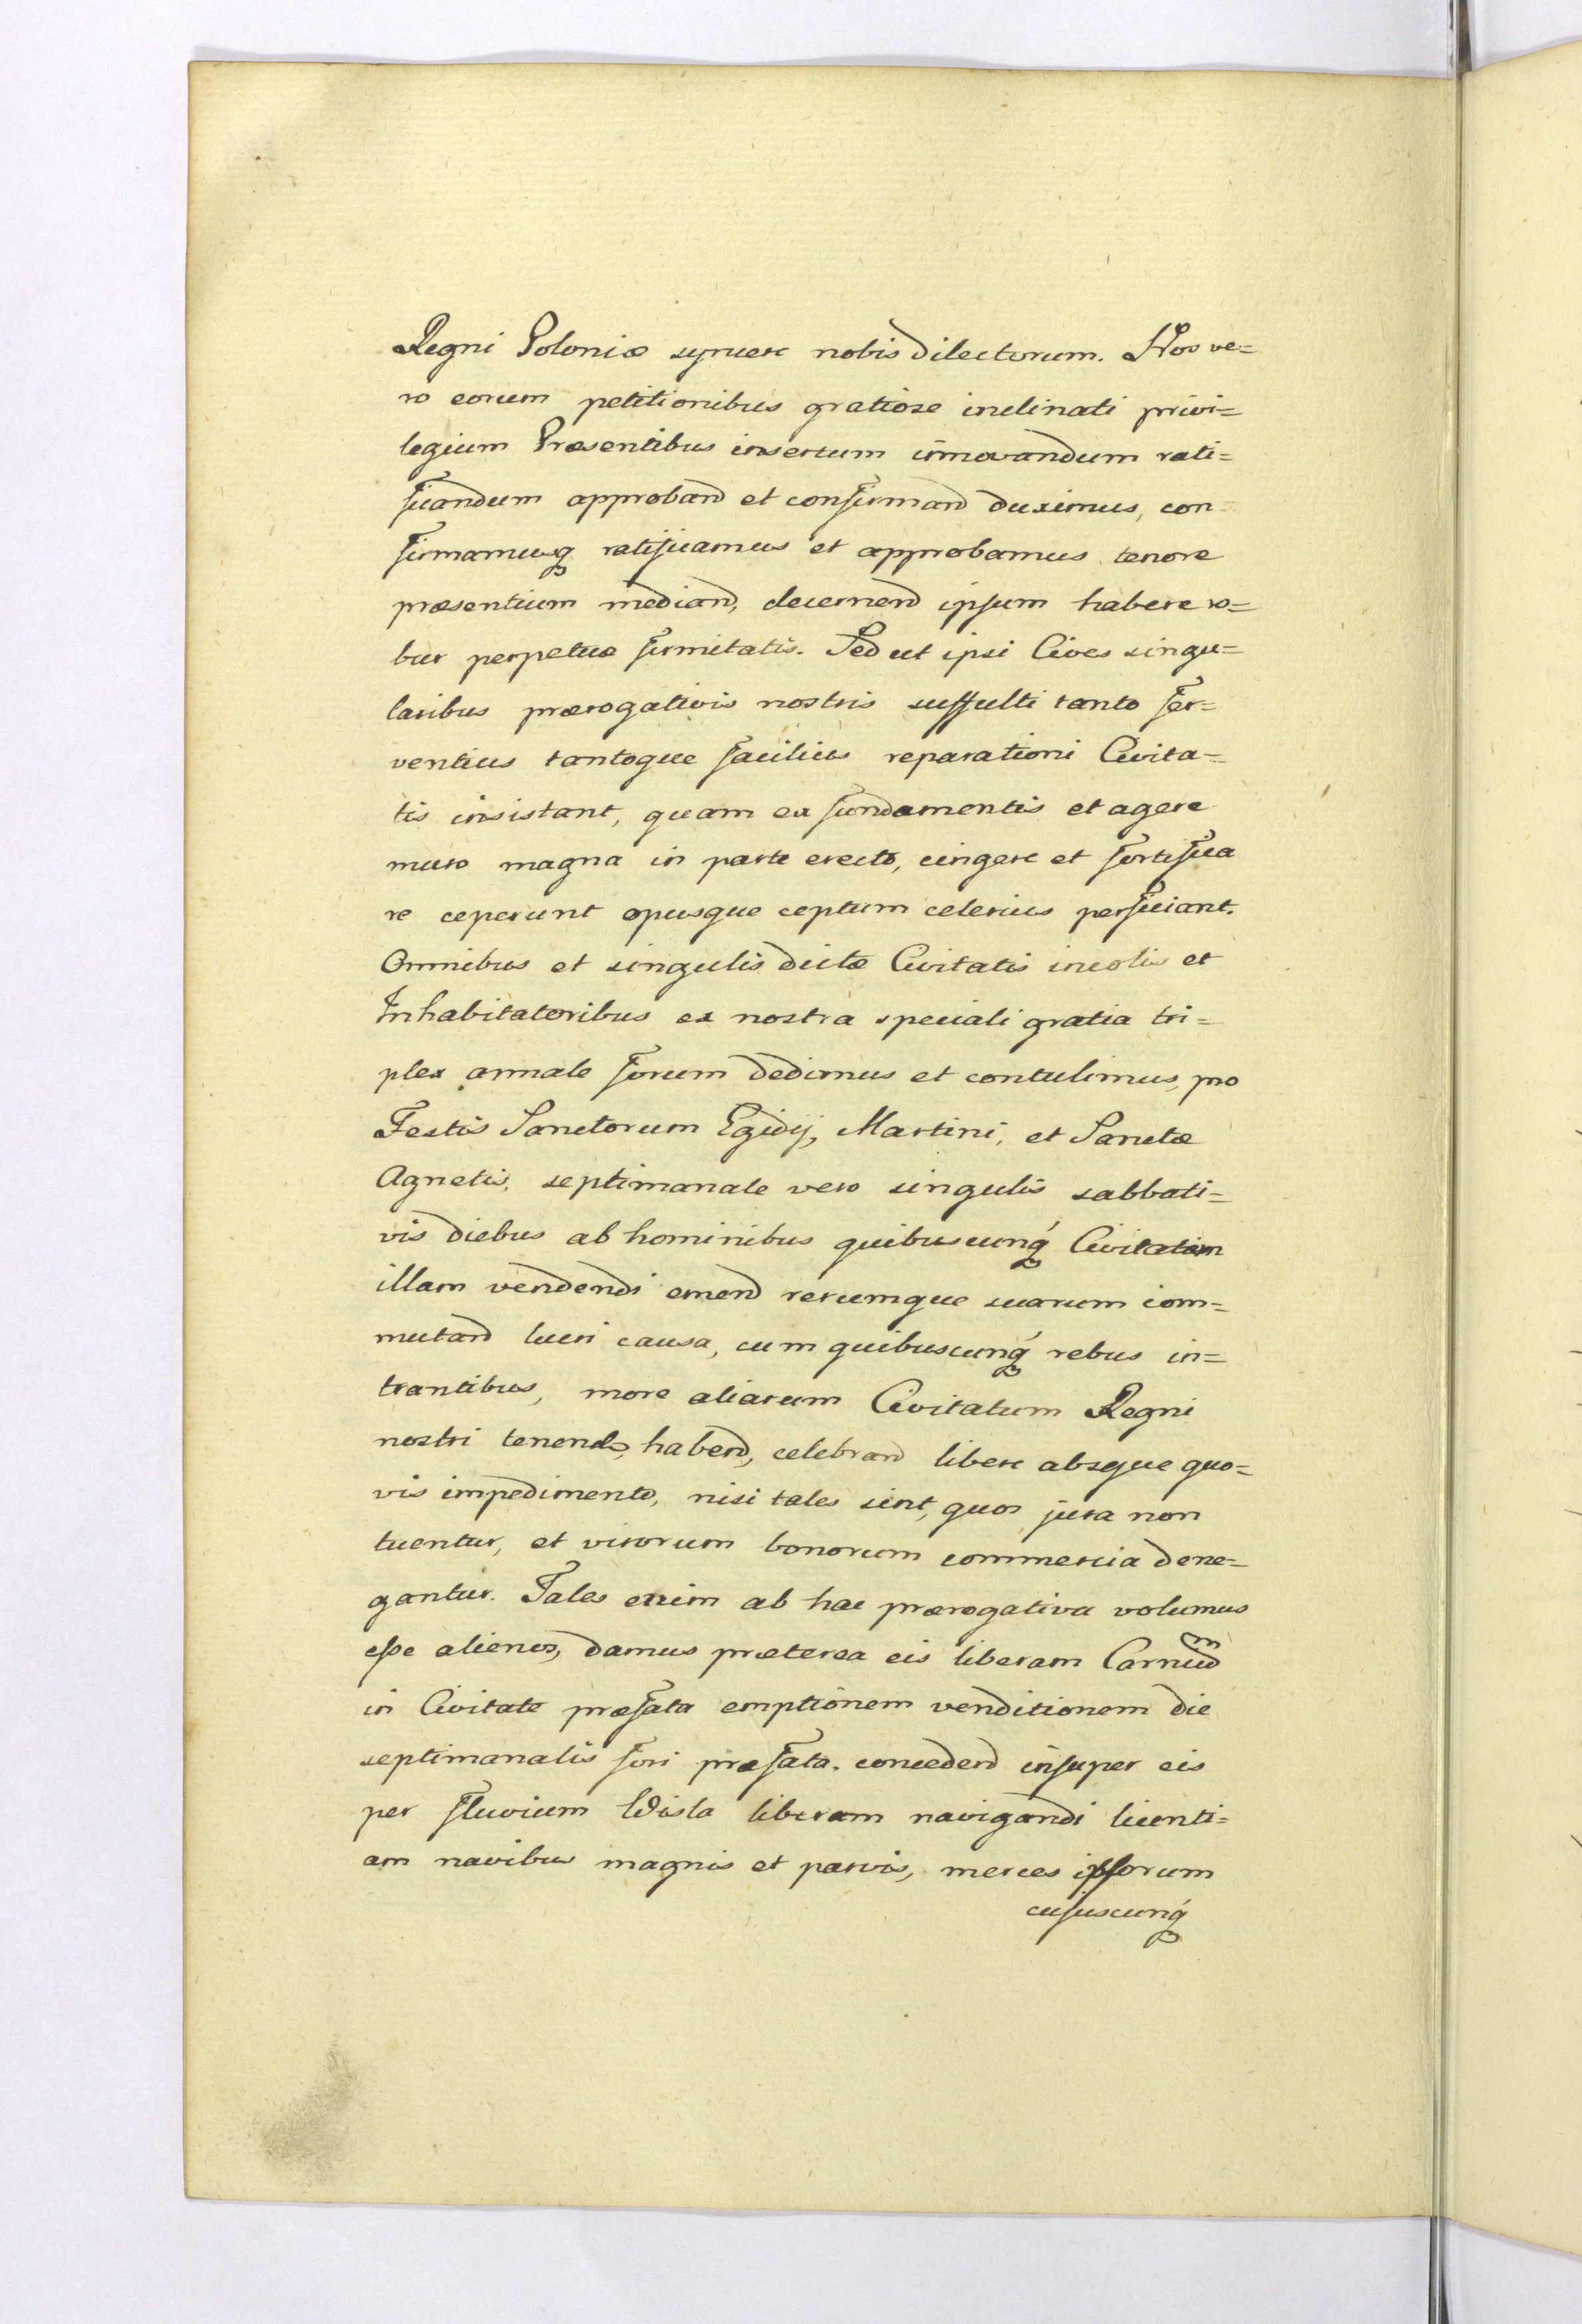 Regni Poloniæ syncere nobis dilectorum. Nos ve=
ro eorum petitionibus gratiose inclinati privi=
legium Præsentibus insertum innovandum rati=
ficandum approband et confirmand duximus, con=
firmamusq́ ratificamus et approbamus tenore
præsentium mediand, decernend ipsum habere ro=
bur perpetuæ firmitatis. Sed ut ipsi Cives singu=
laribus prærogativis nostris suffulti tanto fer=
ventius tantoque facilius reparationi Civita=
tis insistant, quam ex fundamentis et agere
muro magna in parte erecto, cingere et fortifica
re ceperunt opusque ceptum celerius perficiant.
Omnibus et singulis dictæ Civitatis incolis et
Inhabitatoribus ex nostra speciali gratia tri=
plex annale forum dedimus et contulimus, pro
Festis Sanctorum Egidij, Martini, et Sanctæ
Agnetis, septimanale vero singulis sabbati=
vis diebus ab hominibus quibuscunq́ Civitatem
illam vendendi emend rerumque suarum com=
mutand lucri causa, cum quibuscunq́ rebus in=
trantibus, more aliarum Civitatum Regni
nostri tenend, habend, celebrand libere absque quo=
vis impedimento, nisi tales sint, quos jura non
tuentur, et virorum bonorum commercia dene=
gantur. Tales enim ab hac prærogativa volumus
esse alienos, damus præterea eis liberam Carnium
in Civitate præfata emptionem venditionem die
septimanalis fori præfata. concedend insuper eis
per fluvium Wisla liberam navigandi licenti=
am navibus magnis et parvis, merces ipsorum
cujuscunq́